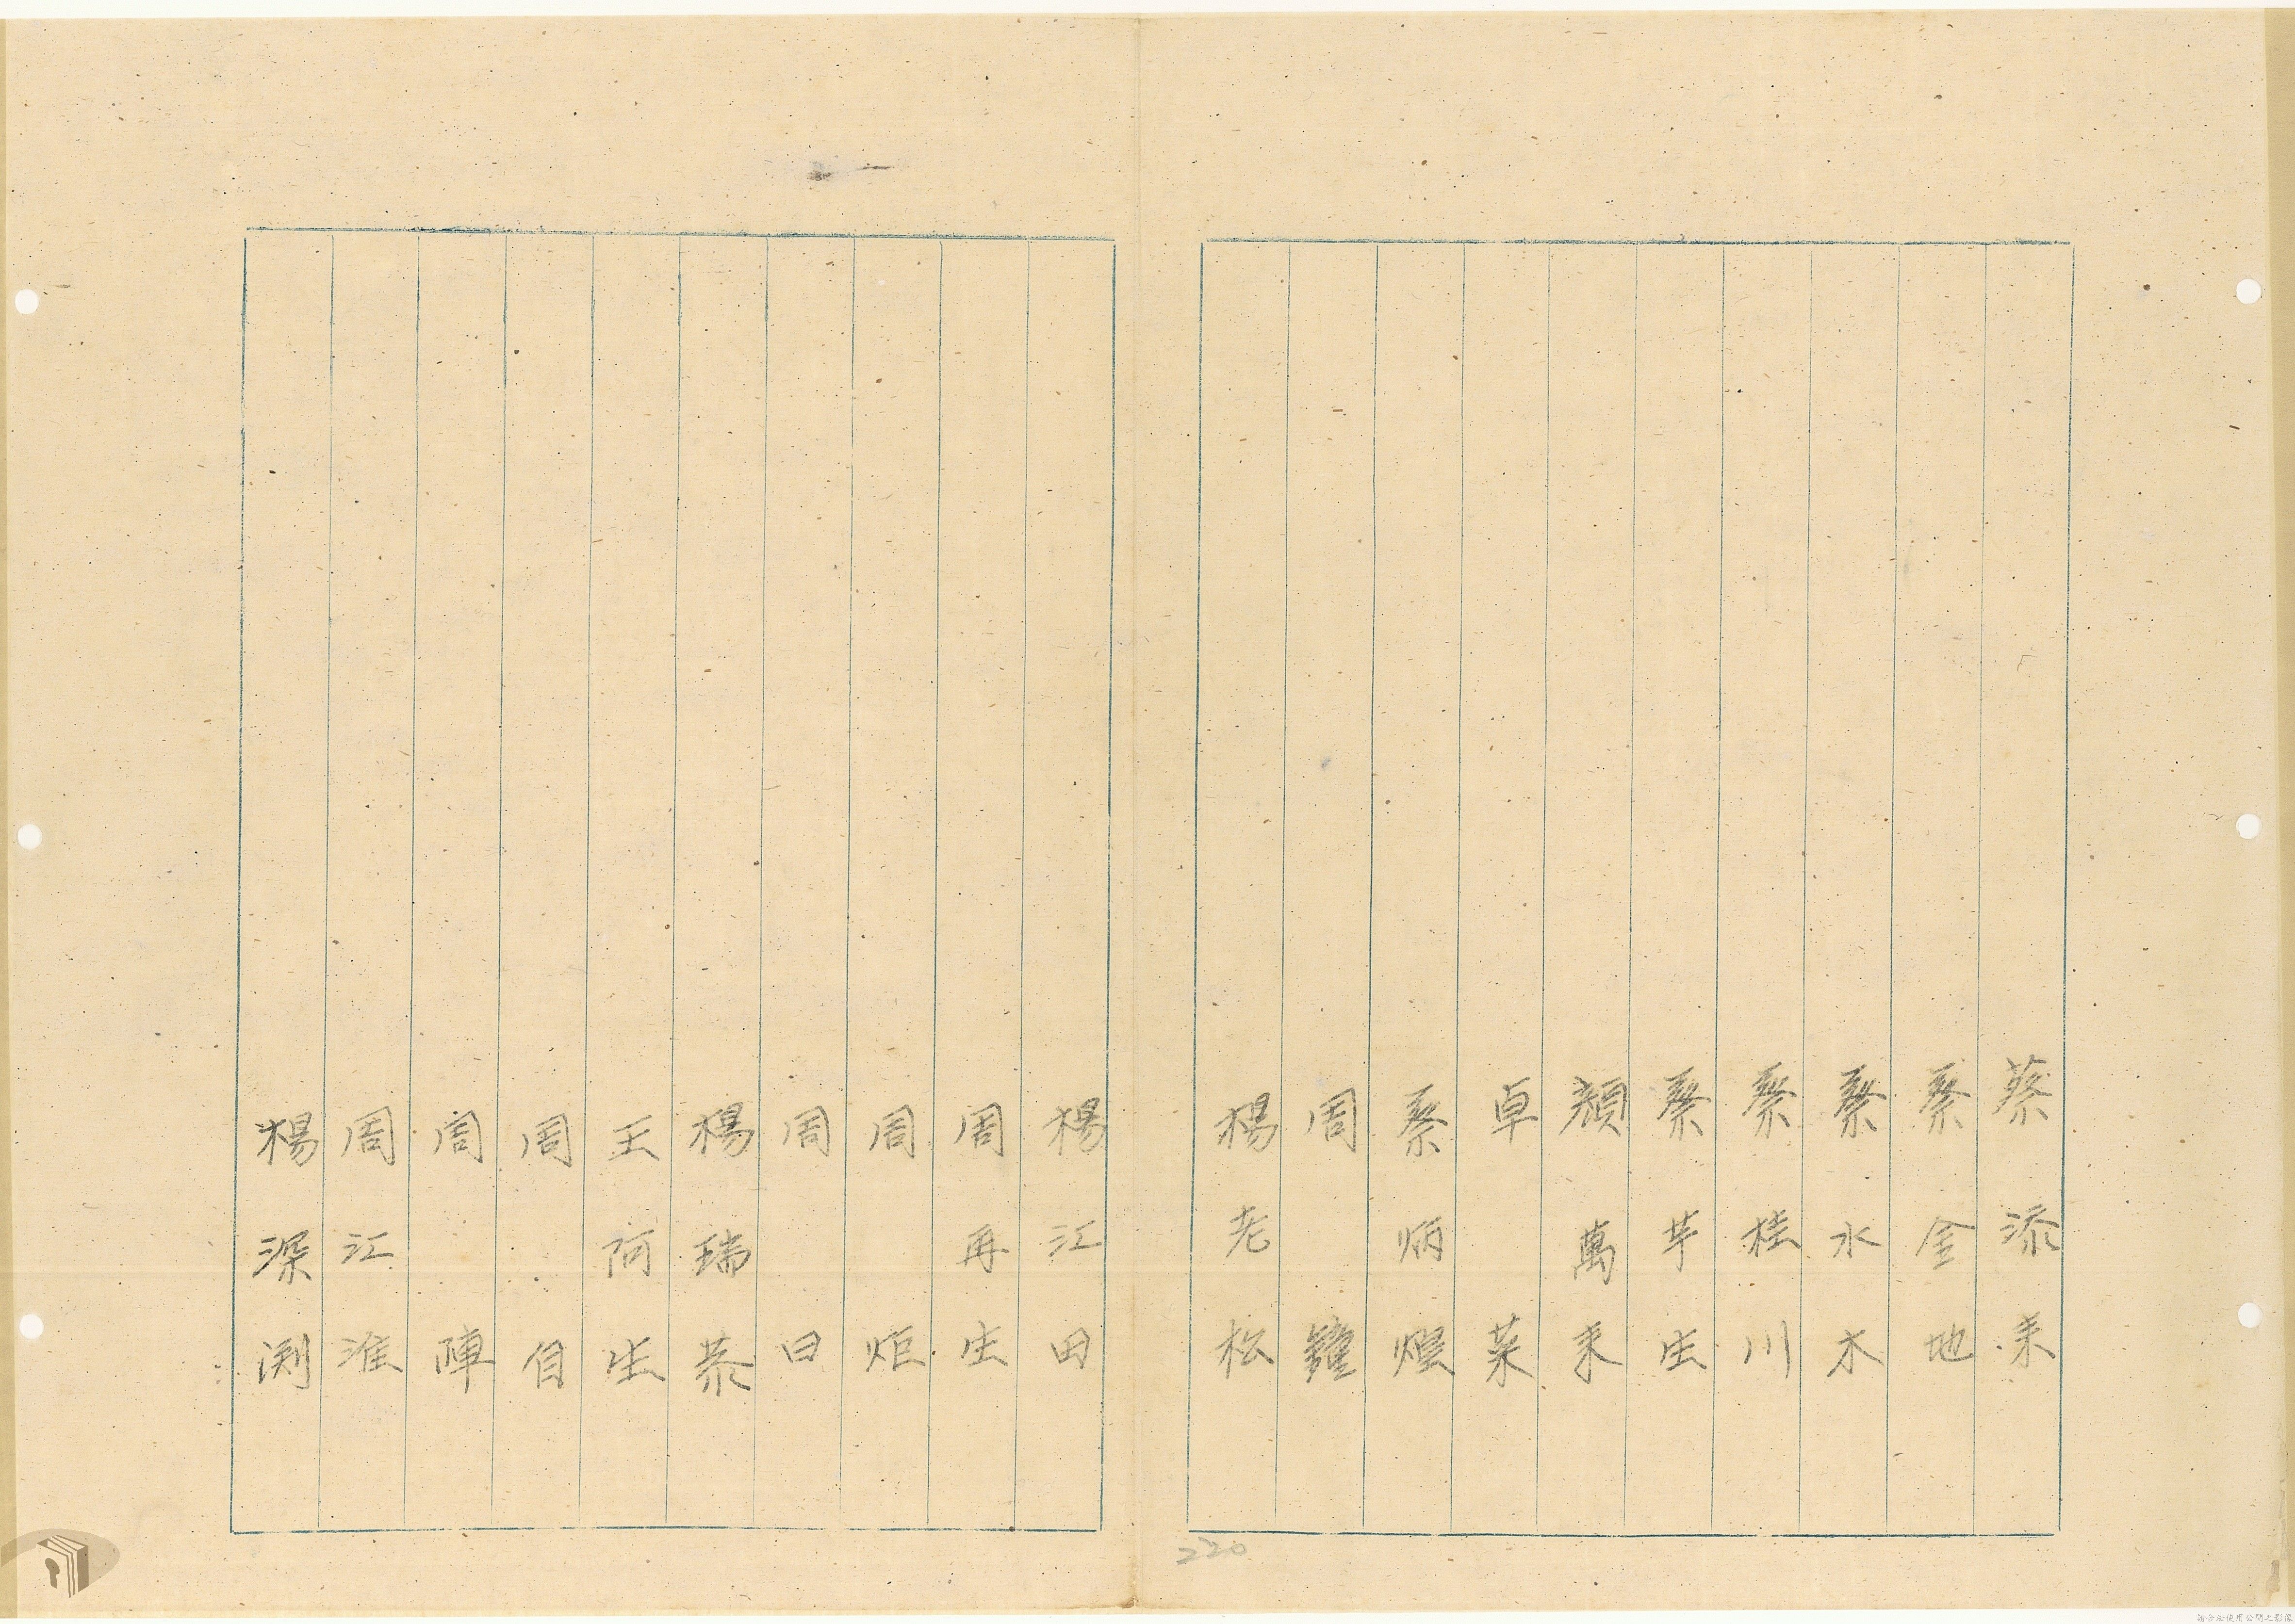 蔡添来
蔡金地
蔡水木
蔡桂川
蔡芋生
顏萬来
卓菜
蔡炳燈
周鐘
楊老松
楊江田
周再生
周炬
周日
楊瑞恭
王阿生
周自
周陣
周江淮
楊深渕
220
請合法使用公開之影像